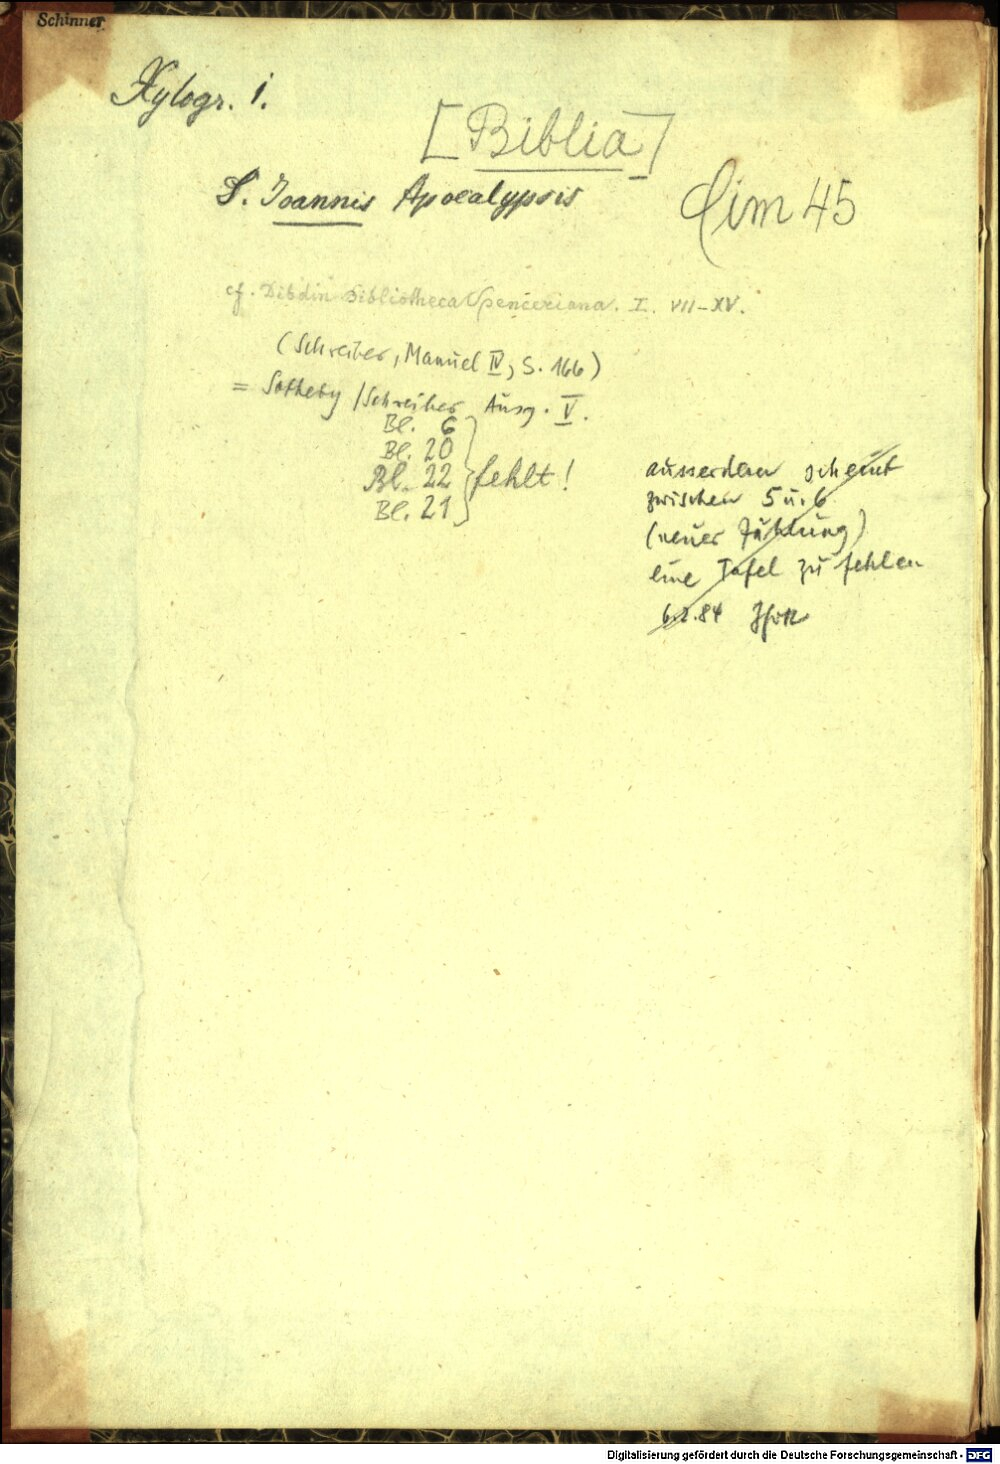 Schinner
Xylogr. 1.
[Biblia]
S. Ioannis Apocalypsis
Cim 45
cf. Dibdin Bibliotheca Spenceriana. I. VII-XV.
(Schreiber, Manuel IV, S. 166)
= Sotheby / Schreiber Ausg. V.
Bl. 6
Bl. 20
Bl. 22 } fehlt!
Bl. 21
ausserdem scheint
zwischen 5 u. 6
(neuer Zählung)
eine Tafel zu fehlen
84
Digitalisierung gefördert durch die Deutsche Forschungsgemeinschaft - DFG